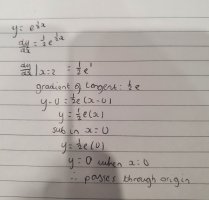 y = e^½x
dy/dx = ½e^½x
dy/dx | x=2 = ½e^1
gradient of tangent: ½e
y-0 = ½e(x-0)
y = ½e(x)
sub in x=0
y = ½e(0)
y = 0 when x=0
∴ passes through origin